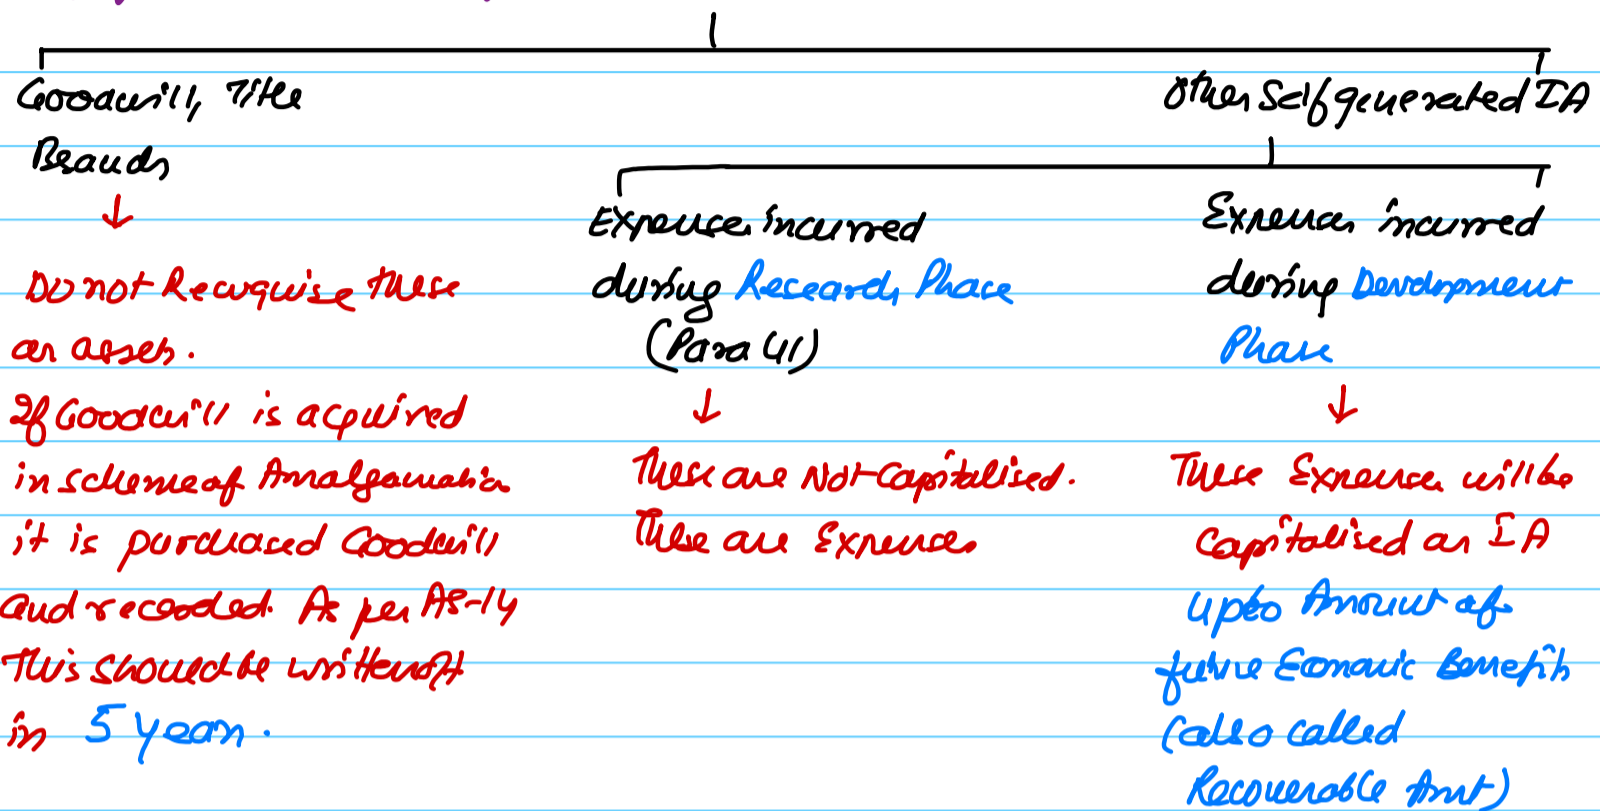 Goodwill, Title
Brands
↓
Do not Recognise these
as assets.
If Goodwill is acquired
in scheme of Amalgamation
it is purchased Goodwill
and recorded. As per AS-14
This should be written off
in 5 years.
Other Self generated IA
Expenses incurred
during Research Phase
(Para 41)
↓
These are Not Capitalised.
These are Expenses
Expenses incurred
during Development
Phase
↓
These Expenses will be
Capitalised as IA
upto Amount of
future Economic Benefits
(also called
Recoverable Amt)